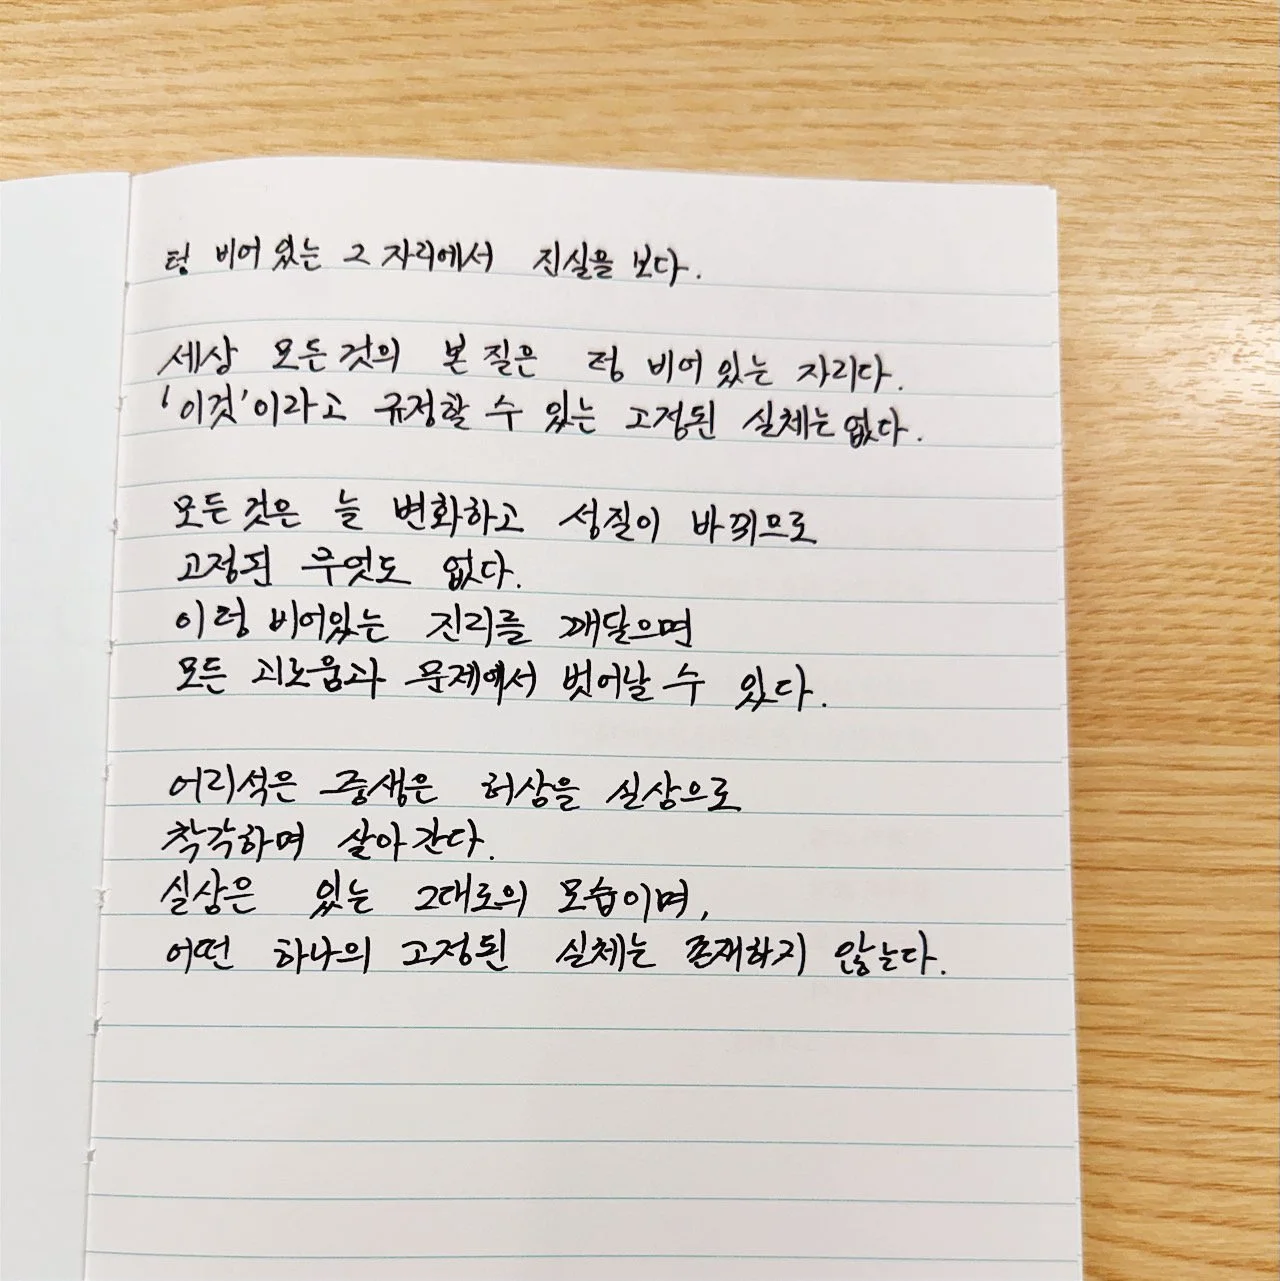 텅 비어 있는 그 자리에서 진실을 보다.
세상 모든 것의 본질은 텅 비어 있는 자리다.
'이것'이라고 규정할 수 있는 고정된 실체는 없다.
모든 것은 늘 변화하고 성질이 바뀌므로
고정된 무엇도 없다.
이 텅 비어있는 진리를 깨달으면
모든 괴로움과 문제에서 벗어날 수 있다.
어리석은 중생은 허상을 실상으로
착각하며 살아간다.
실상은 있는 그대로의 모습이며,
어떤 하나의 고정된 실체는 존재하지 않는다.